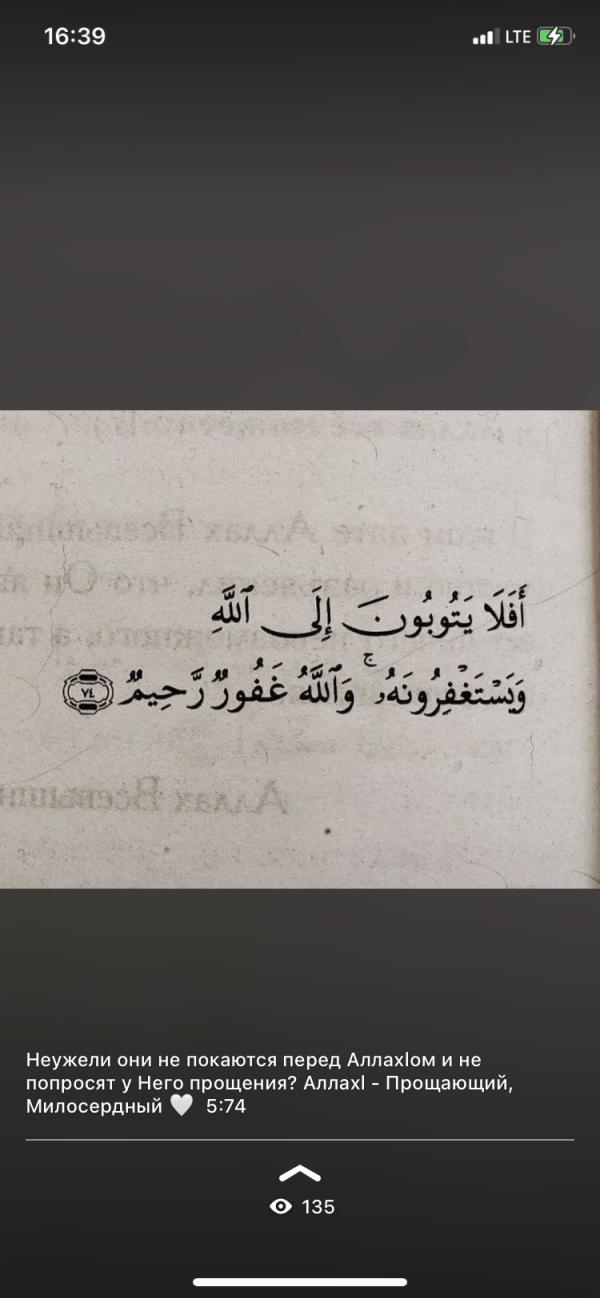 16:39 LTE
أَفَلَا يَتُوبُونَ إِلَى ٱللَّهِ
وَيَسْتَغْفِرُونَهُۥ ۚ وَٱللَّهُ غَفُورٌ رَّحِيمٌ ٧٤
Аллах Всевышний
Аллах Всевыш
Неужели они не покаются перед Аллахlом и не
попросят у Него прощения? Аллахl - Прощающий,
Милосердный 🤍 5:74
135